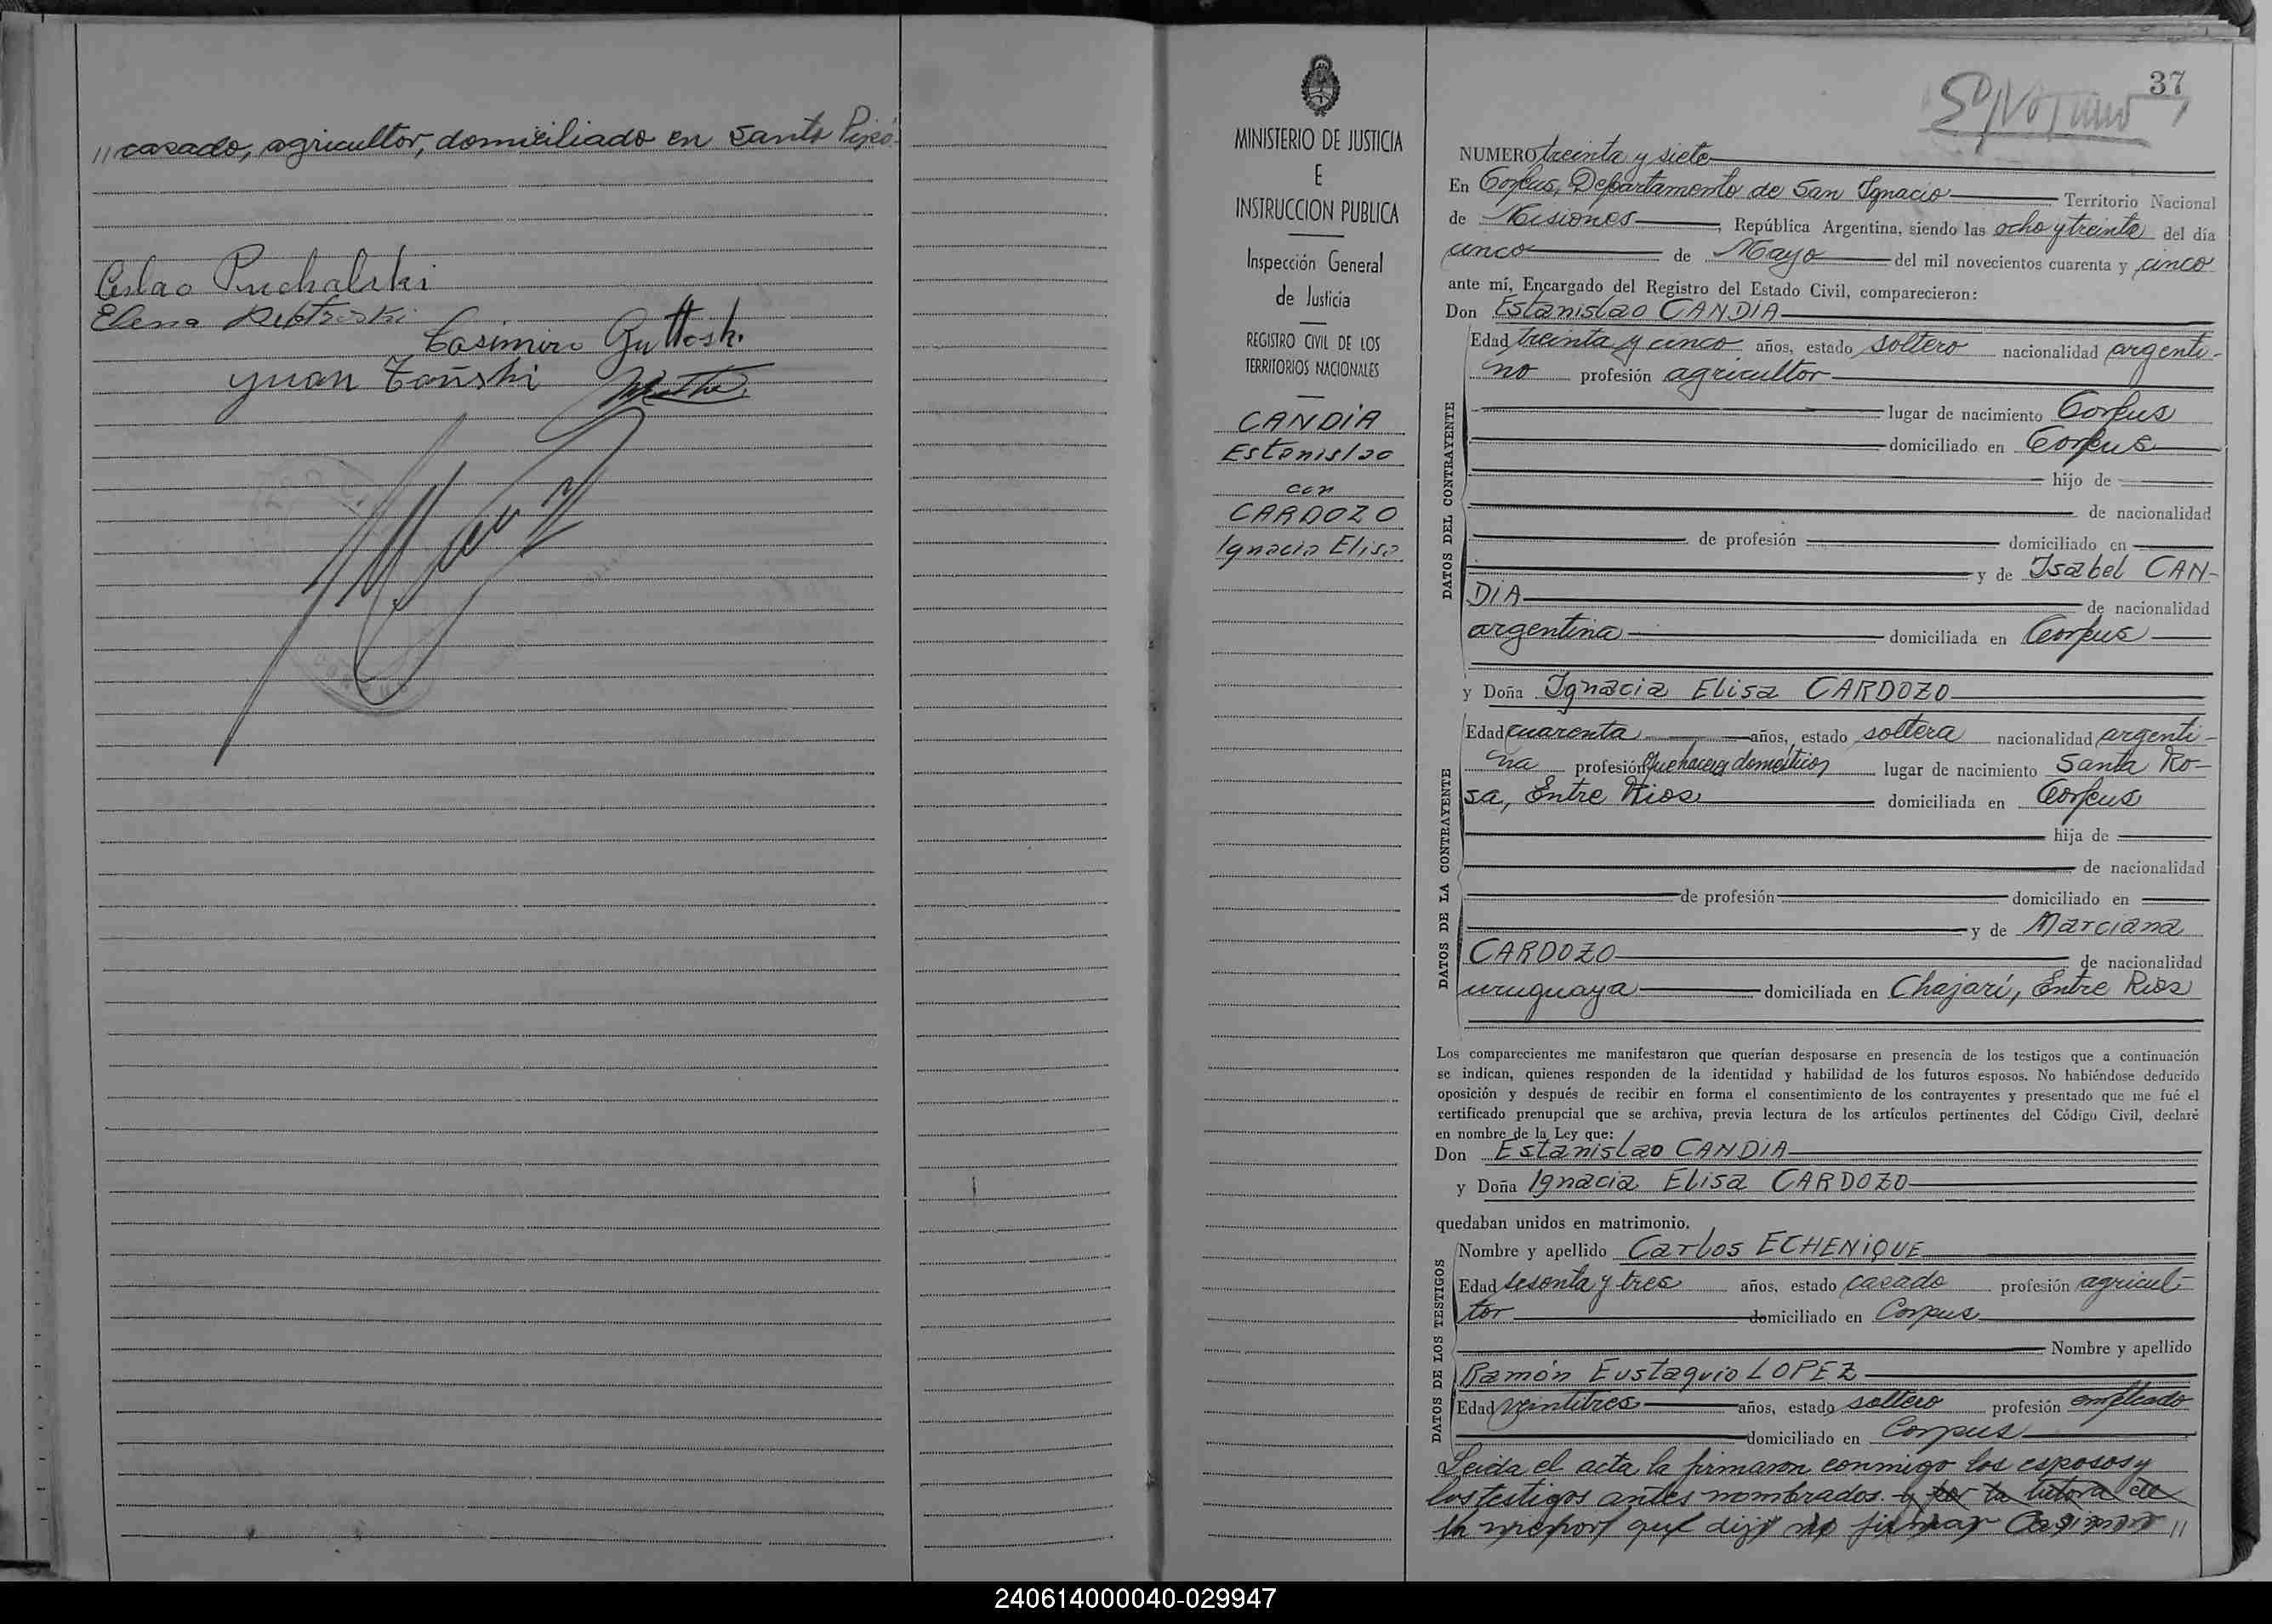 // casado, agricultor, domiciliado en Santo Pipó.
Ceslao Puchalski
Elena Pietroski
Casimiro Guttoski
Juan Tañski
37
MINISTERIO DE JUSTICIA
E
INSTRUCCION PUBLICA
Inspección General
de Justicia
REGISTRO CIVIL DE LOS
TERRITORIOS NACIONALES
CANDIA
Estanislao
con
CARDOZO
Ignacia Elisa
NUMERO treinta y siete
En Corpus, Departamento de San Ignacio Territorio Nacional
de Misiones, República Argentina, siendo las ocho y treinta del día
cinco de Mayo del mil novecientos cuarenta y cinco
ante mí, Encargado del Registro del Estado Civil, comparecieron:
Don Estanislao CANDIA
DATOS DEL CONTRAYENTE
Edad treinta y cinco años, estado soltero nacionalidad argenti-
no profesión agricultor
lugar de nacimiento Corpus
domiciliado en Corpus
hijo de
de nacionalidad
de profesión domiciliado en
y de Isabel CAN-
DIA de nacionalidad
argentina domiciliada en Corpus
y Doña Ignacia Elisa CARDOZO
DATOS DE LA CONTRAYENTE
Edad cuarenta años, estado soltera nacionalidad argenti-
na profesión Quehaceres domésticos lugar de nacimiento Santa Ro-
sa, Entre Rios domiciliada en Corpus
hija de
de nacionalidad
de profesión domiciliado en
y de Marciana
CARDOZO de nacionalidad
uruguaya domiciliada en Chajarí, Entre Rios
Los comparecientes me manifestaron que querían desposarse en presencia de los testigos que a continuación
se indican, quienes responden de la identidad y habilidad de los futuros esposos. No habiéndose deducido
oposición y después de recibir en forma el consentimiento de los contrayentes y presentado que me fué el
certificado prenupcial que se archiva, previa lectura de los artículos pertinentes del Código Civil, declaré
en nombre de la Ley que:
Don Estanislao CANDIA
y Doña Ignacia Elisa CARDOZO
quedaban unidos en matrimonio.
DATOS DE LOS TESTIGOS
Nombre y apellido Carlos ECHENIQUE
Edad sesenta y tres años, estado casado profesión agricul-
tor domiciliado en Corpus
Nombre y apellido
Ramón Eustaquio LOPEZ
Edad veintitres años, estado soltero profesión empleado
domiciliado en Corpus
Leida el acta la firmaron conmigo los esposos y
los testigos antes nombrados. y por la tutora de
la menor que dijo no firmar Casimiro //
240614000040-029947